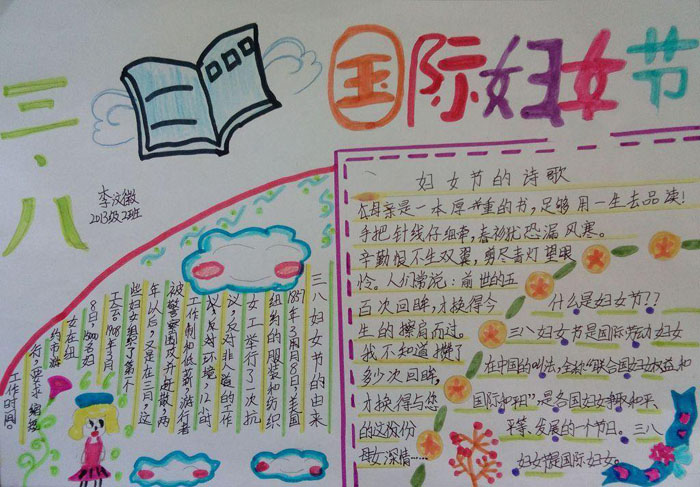 三、八
国际妇女节
李汶徽
2013级2班
三八妇女节的由来
1857年3月8日,美国
纽约的服装和纺织
女工举行了一次抗
议,反对非人道的工作
环境,12小时
工作制和低薪。游行者
被警察围攻并赶散,两
年以后,又是在三月,这
些妇女组织了第一个
工会1908年3月
8日,1500名妇
女在纽
约市游
行,要求缩短
工作时间。
妇女节的诗歌
母亲是一本厚重的书,足够用一生去品读!
手把针线仔细牵,春衫犹恐漏风寒。
辛勤恨不生双翼,剪尽青灯望眼
人们常说:前世的五
百次回眸,才换得今
生的擦肩而过,
我不知道攒了
多少次回眸,
才换得与您
的这份
母女深情……
什么是妇女节??
三八妇女节是国际劳动妇女
在中国的叫法,全称“联合国妇女权益和
国际和平”,是各国妇女争取和平、
平等、发展的一个节日。三八
妇女节是国际妇女。